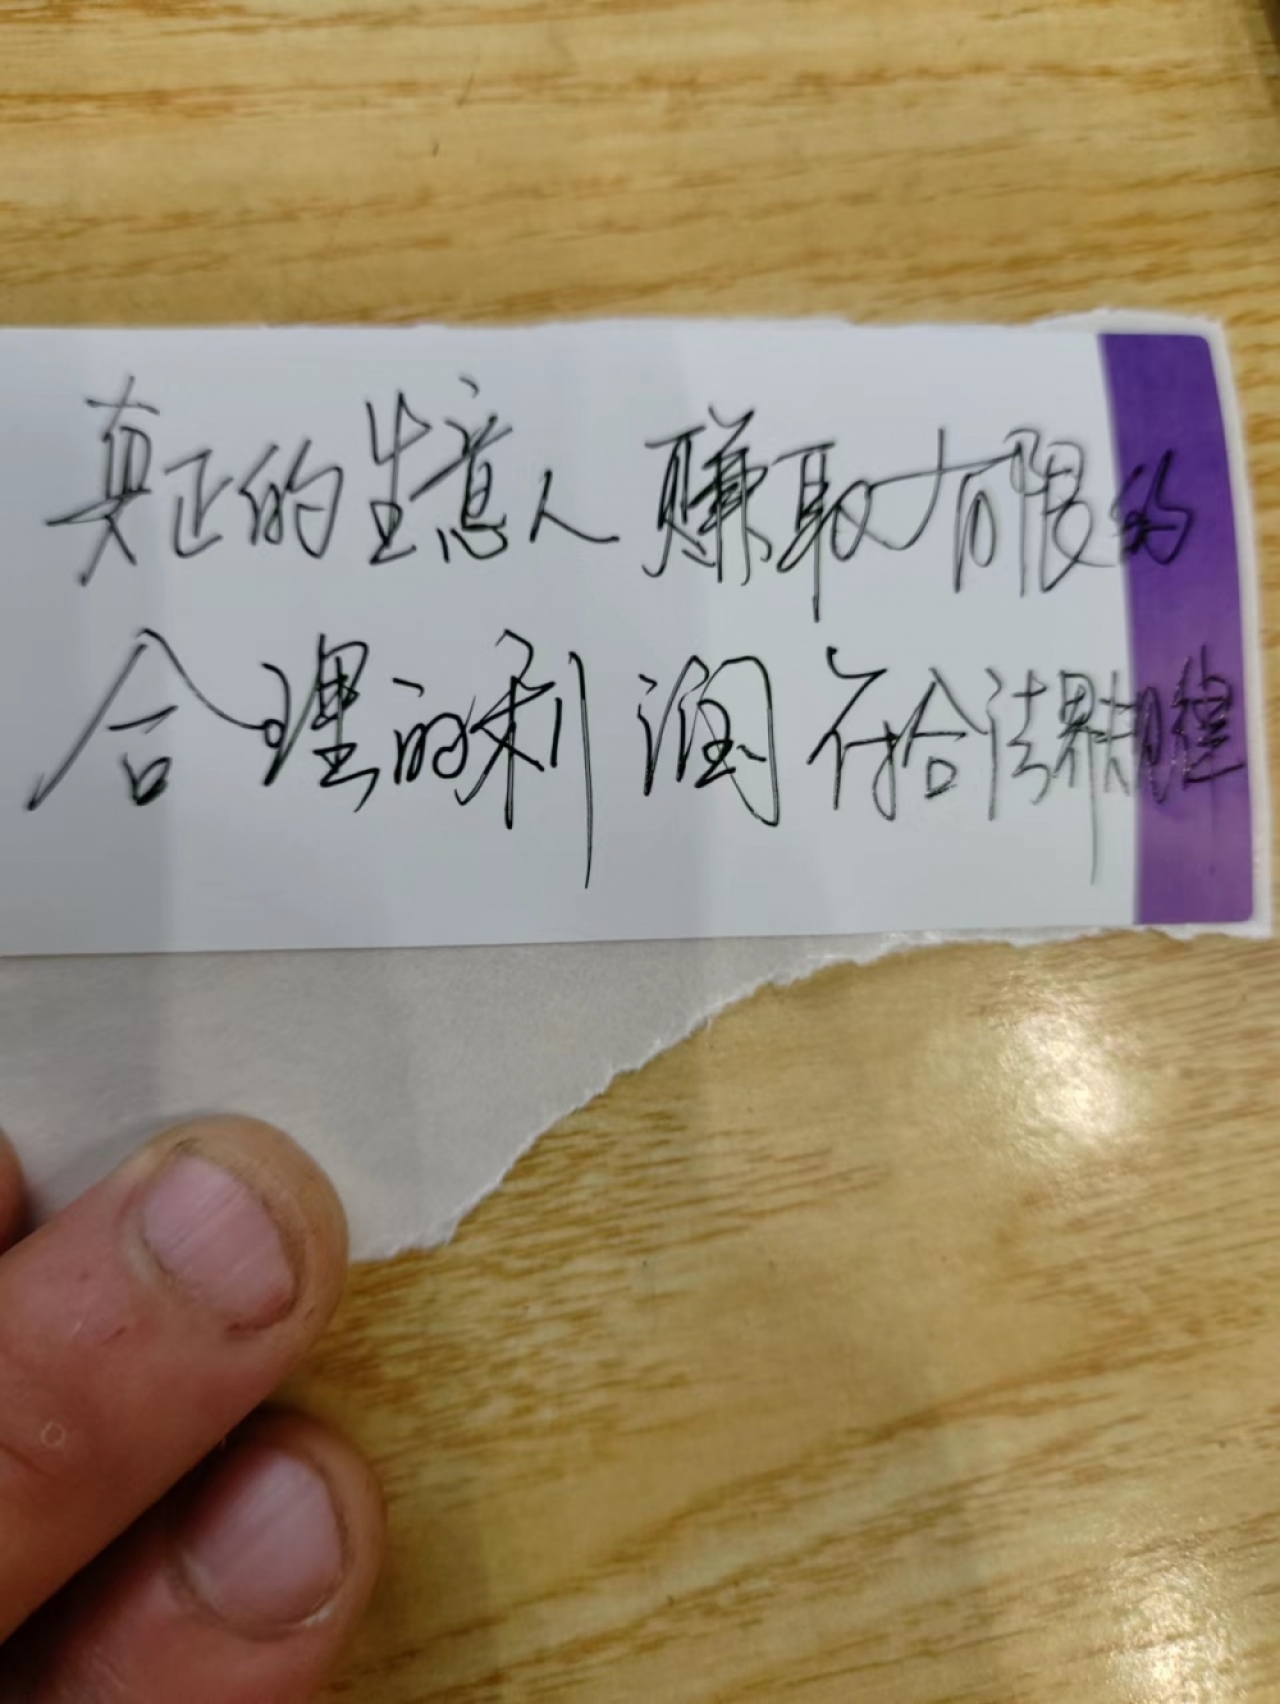 真正的生意人 赚取有限的
合理的利润 符合法界规律